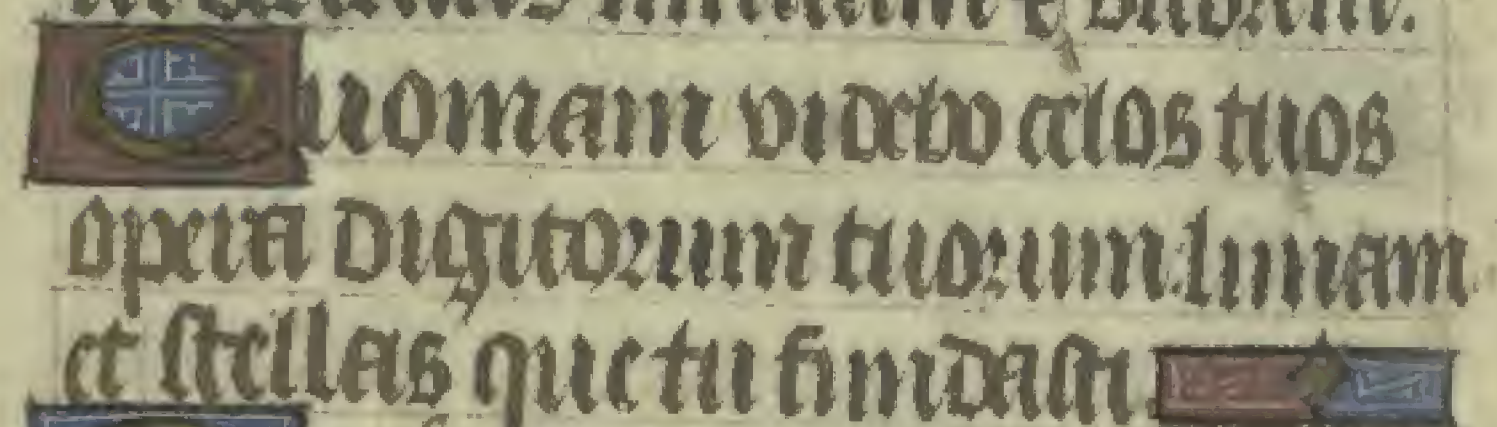 Quoniam videbo celos tuos
opera digitorum tuorum: lunam
et stellas que tu fundasti.